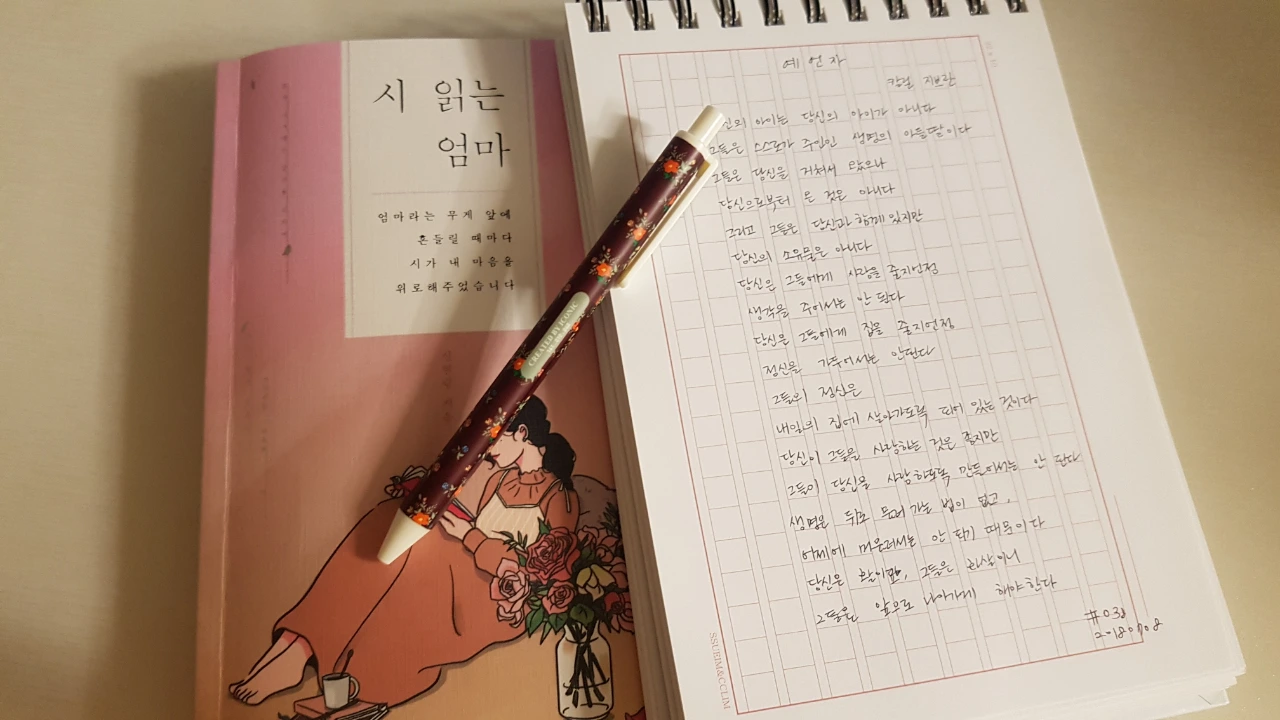 시 읽는
엄마
엄마라는 무게 앞에
흔들릴 때마다
시가 내 마음을
위로해주었습니다
CREATED BY ICONIC
예언자
칼릴 지브란
신의 아이는 당신의 아이가 아니다
그들은 스스로가 주인인 생명의 아들딸이다
그들은 당신을 거쳐서 왔으나
당신으로부터 온 것은 아니다
그리고 그들은 당신과 함께 있지만
당신의 소유물은 아니다
당신은 그들에게 사랑을 줄지언정
생각을 주어서는 안 된다
당신은 그들에게 집을 줄지언정
정신을 가두어서는 안된다
그들의 정신은
내일의 집에 살아가도록 되어 있는 것이다
당신이 그들을 사랑하는 것은 좋지만
그들이 당신을 사랑하도록 만들어서는 안 된다
생명은 뒤로 돌려 가는 법이 없고,
어제에 머문려서는 안 되기 때문이다
당신은 활이며, 그들은 화살이니
그들을 앞으로 나아가게 해야한다
#038
20180108
SSURIM&CCLIM